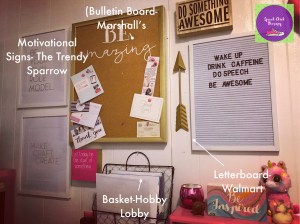 (Bulletin Board-
Marshall's
Motivational
Signs- The Trendy
Sparrow
DO SOMETHING
AWESOME
BE
amazing
WAKE UP
DRINK CAFFEINE
DO SPEECH
BE AWESOME
Thank you
Letterboard-
Walmart
Basket-Hobby
Lobby
Be
Inspired